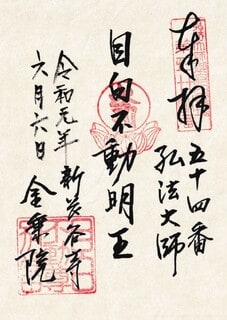 奉拝
五十四番
弘法大師
目白不動明王
新長谷寺
金乗院
令和元年
六月六日